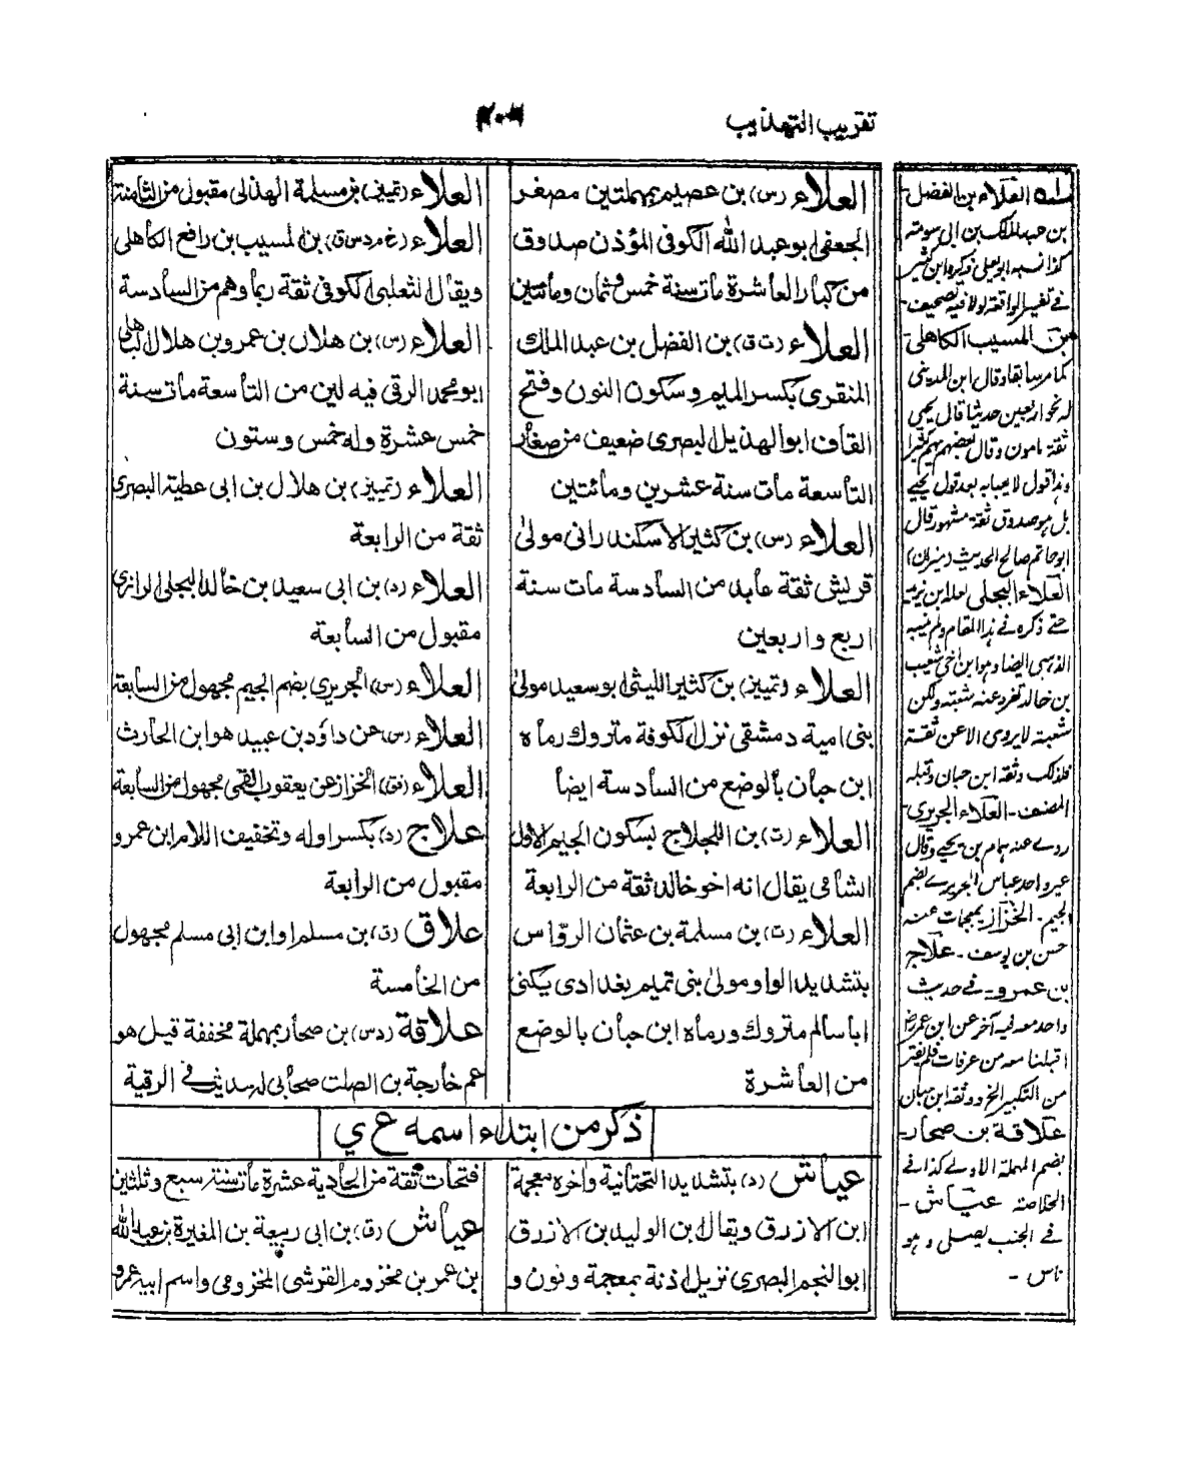 تقريب التهذيب
العلاء (س) بن عصيم بمهملتين مصغر
الجعفي ابو عبد الله الكوفي المؤذن صدوق
من كبار العاشرة مات سنة خمس وثمان ومائتين
العلاء (ت ق) بن الفضل بن عبد الملك
المنقري بكسر الميم وسكون النون وفتح
القاف ابو الهذيل البصري ضعيف من صغار
التاسعة مات سنة عشرين ومائتين
العلاء (س) بن كثير الاسكندراني مولى
قريش ثقة عابد من السادسة مات سنة
اربع واربعين
العلاء (تمييز) بن كثير الليثي ابو سعيد مولى
بني امية دمشقي نزل الكوفة متروك رماه
ابن حبان بالوضع من السادسة ايضا
العلاء (ت) بن اللجلاج بسكون الجيم الاولى
الشامي يقال انه اخو خالد ثقة من الرابعة
العلاء (ت) بن مسلمة بن عثمان الرواس
بتشديد الواو مولى بني تميم بغدادي يكنى
ابا سالم متروك ورماه ابن حبان بالوضع
من العاشرة
العلاء (تمييز) بن مسلمة الهذلي مقبول من الثامنة
العلاء (خ م د س ق) بن المسيب بن رافع الكاهلي
ويقال الثعلبي الكوفي ثقة ربما وهم من السادسة
العلاء (س) بن هلال بن عمرو بن هلال الباهلي
ابو محمد الرقي فيه لين من التاسعة مات سنة
خمس عشرة وله خمس وستون
العلاء (تمييز) بن هلال بن ابي عطية البصري
ثقة من الرابعة
العلاء (د) بن ابي سعيد بن خالد البجلي الرازي
مقبول من السابعة
العلاء (س) الجريري بضم الجيم مجهول من السابعة
العلاء (س) عن داود بن عبيد هو ابن الحارث
العلاء (فق) الخزاز عن يعقوب القمي مجهول من السابعة
علاج (د) بكسر اوله وتخفيف اللام ابن عمرو
مقبول من الرابعة
علاق (ق) بن مسلم او ابن ابي مسلم مجهول
من الخامسة
علاقة (د س) بن صحار بمهملة مخففة قيل هو
عم خارجة بن الصلت صحابي له حديث في الرقية
ذكر من ابتداء اسمه ع ي
عياش (د) بتشديد التحتانية واخره معجمة
ابن الازرق ويقال ابن الوليد بن الازرق
ابو النجم البصري نزيل اذنة بمعجمة ونون و
فتحات ثقة من الحادية عشرة مات سنة سبع وثلثين
عياش (ق) بن ابي ربيعة بن المغيرة بن عبد الله
بن عمر بن مخزوم القرشي المخزومي واسم ابيه عمرو
العلاء بن الفضل -
بن عبد الملك بن ابي سوية
كذا نسبه ابو يعلى ذكره ابن كثير
بن المسيب الكاهلي -
كما مر سابقا وقال ابن المديني
له نحو اربعين حديثا قال يحيى
ثقة مامون وقال بعضهم يهم كثيرا
وهذا قول لا يعبا به بعد قول يحيى
بل هو صدوق ثقة مشهور قال
ابو حاتم صالح الحديث (ميزان)
العلاء البجلي
حتى ذكره في هذا المقام ولم ينسبه
الذهبي ايضا وهو ابن اخي شعيب
بن خالد تفرد عنه شعبة ولكن
شعبة لا يروي الا عن ثقة
فلذلك وثقه ابن حبان وقبله
المصنف - العلاء الجريري -
روى عنه همام بن يحيى وقال
غير واحد عباس الجريري بضم
الجيم - الخزاز بمعجمات عنه
حسن بن يوسف - علاج
بن عمرو - في حديث
واحد معه فيه آخر عن ابن عمر رض
اقبلنا معه من عرفات فلم يفتر
من التكبير الخ ووثقه ابن حبان
علاقة بن صحار -
بضم المهملة الاولى كذا في
الخلاصة عياش -
في الجنب يصلي وهو
ناس -